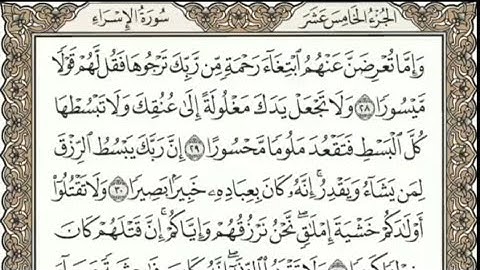 الجزء الخامس عشر
سورة الإسراء
وَإِمَّا تُعْرِضَنَّ عَنْهُمُ ٱبْتِغَآءَ رَحْمَةٍ مِّن رَّبِّكَ تَرْجُوهَا فَقُل لَّهُمْ قَوْلًا
مَّيْسُورًا ٢٨ وَلَا تَجْعَلْ يَدَكَ مَغْلُولَةً إِلَىٰ عُنُقِكَ وَلَا تَبْسُطْهَا
كُلَّ ٱلْبَسْطِ فَتَقْعُدَ مَلُومًا مَّحْسُورًا ٢٩ إِنَّ رَبَّكَ يَبْسُطُ ٱلرِّزْقَ
لِمَن يَشَآءُ وَيَقْدِرُ ۚ إِنَّهُۥ كَانَ بِعِبَادِهِۦ خَبِيرًۢا بَصِيرًا ٣٠ وَلَا تَقْتُلُوٓا۟
أَوْلَـٰدَكُمْ خَشْيَةَ إِمْلَـٰقٍ ۖ نَّحْنُ نَرْزُقُهُمْ وَإِيَّاكُمْ ۚ إِنَّ قَتْلَهُمْ كَانَ